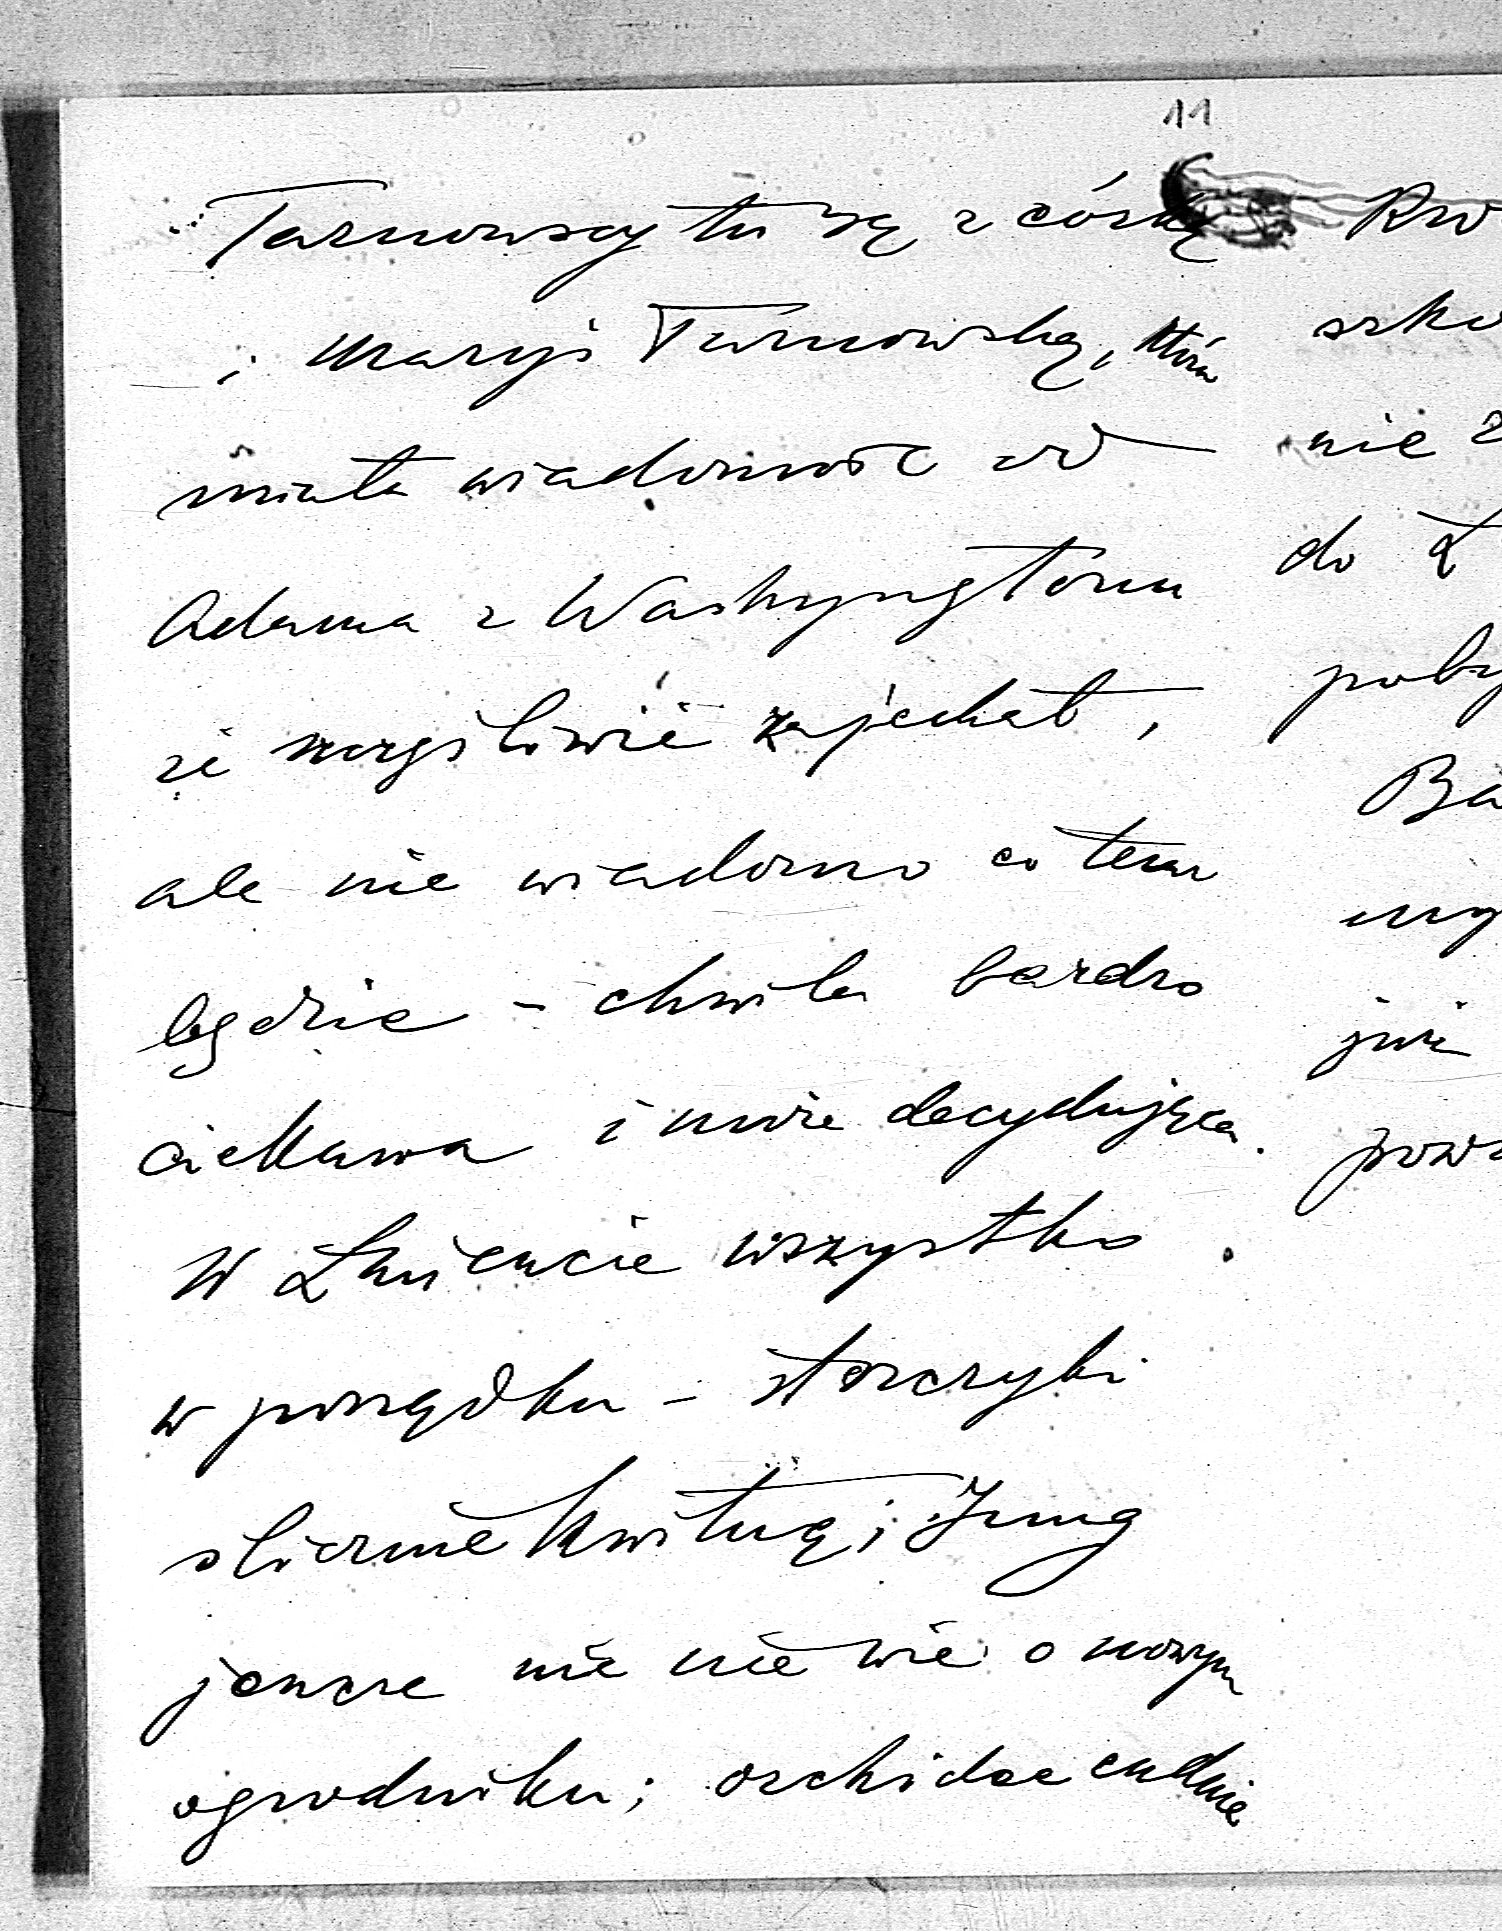 11
Tarnowscy tu są z córką
i Maryś Tarnowską, która
miała wiadomość od
Adama z Washyngtonu
że szczęśliwie zajechał,
ale nie wiadomo co teraz
będzie – chwila bardzo
ciekawa i może decydująca.
W Łańcucie wszystko
w porządku – storczyki
ślicznie kwitną; Jung
jeszcze nic nie wie o nowym
ogrodniku; orchidee cudnie
szko
nie z
do Ł
poby
Ba
już